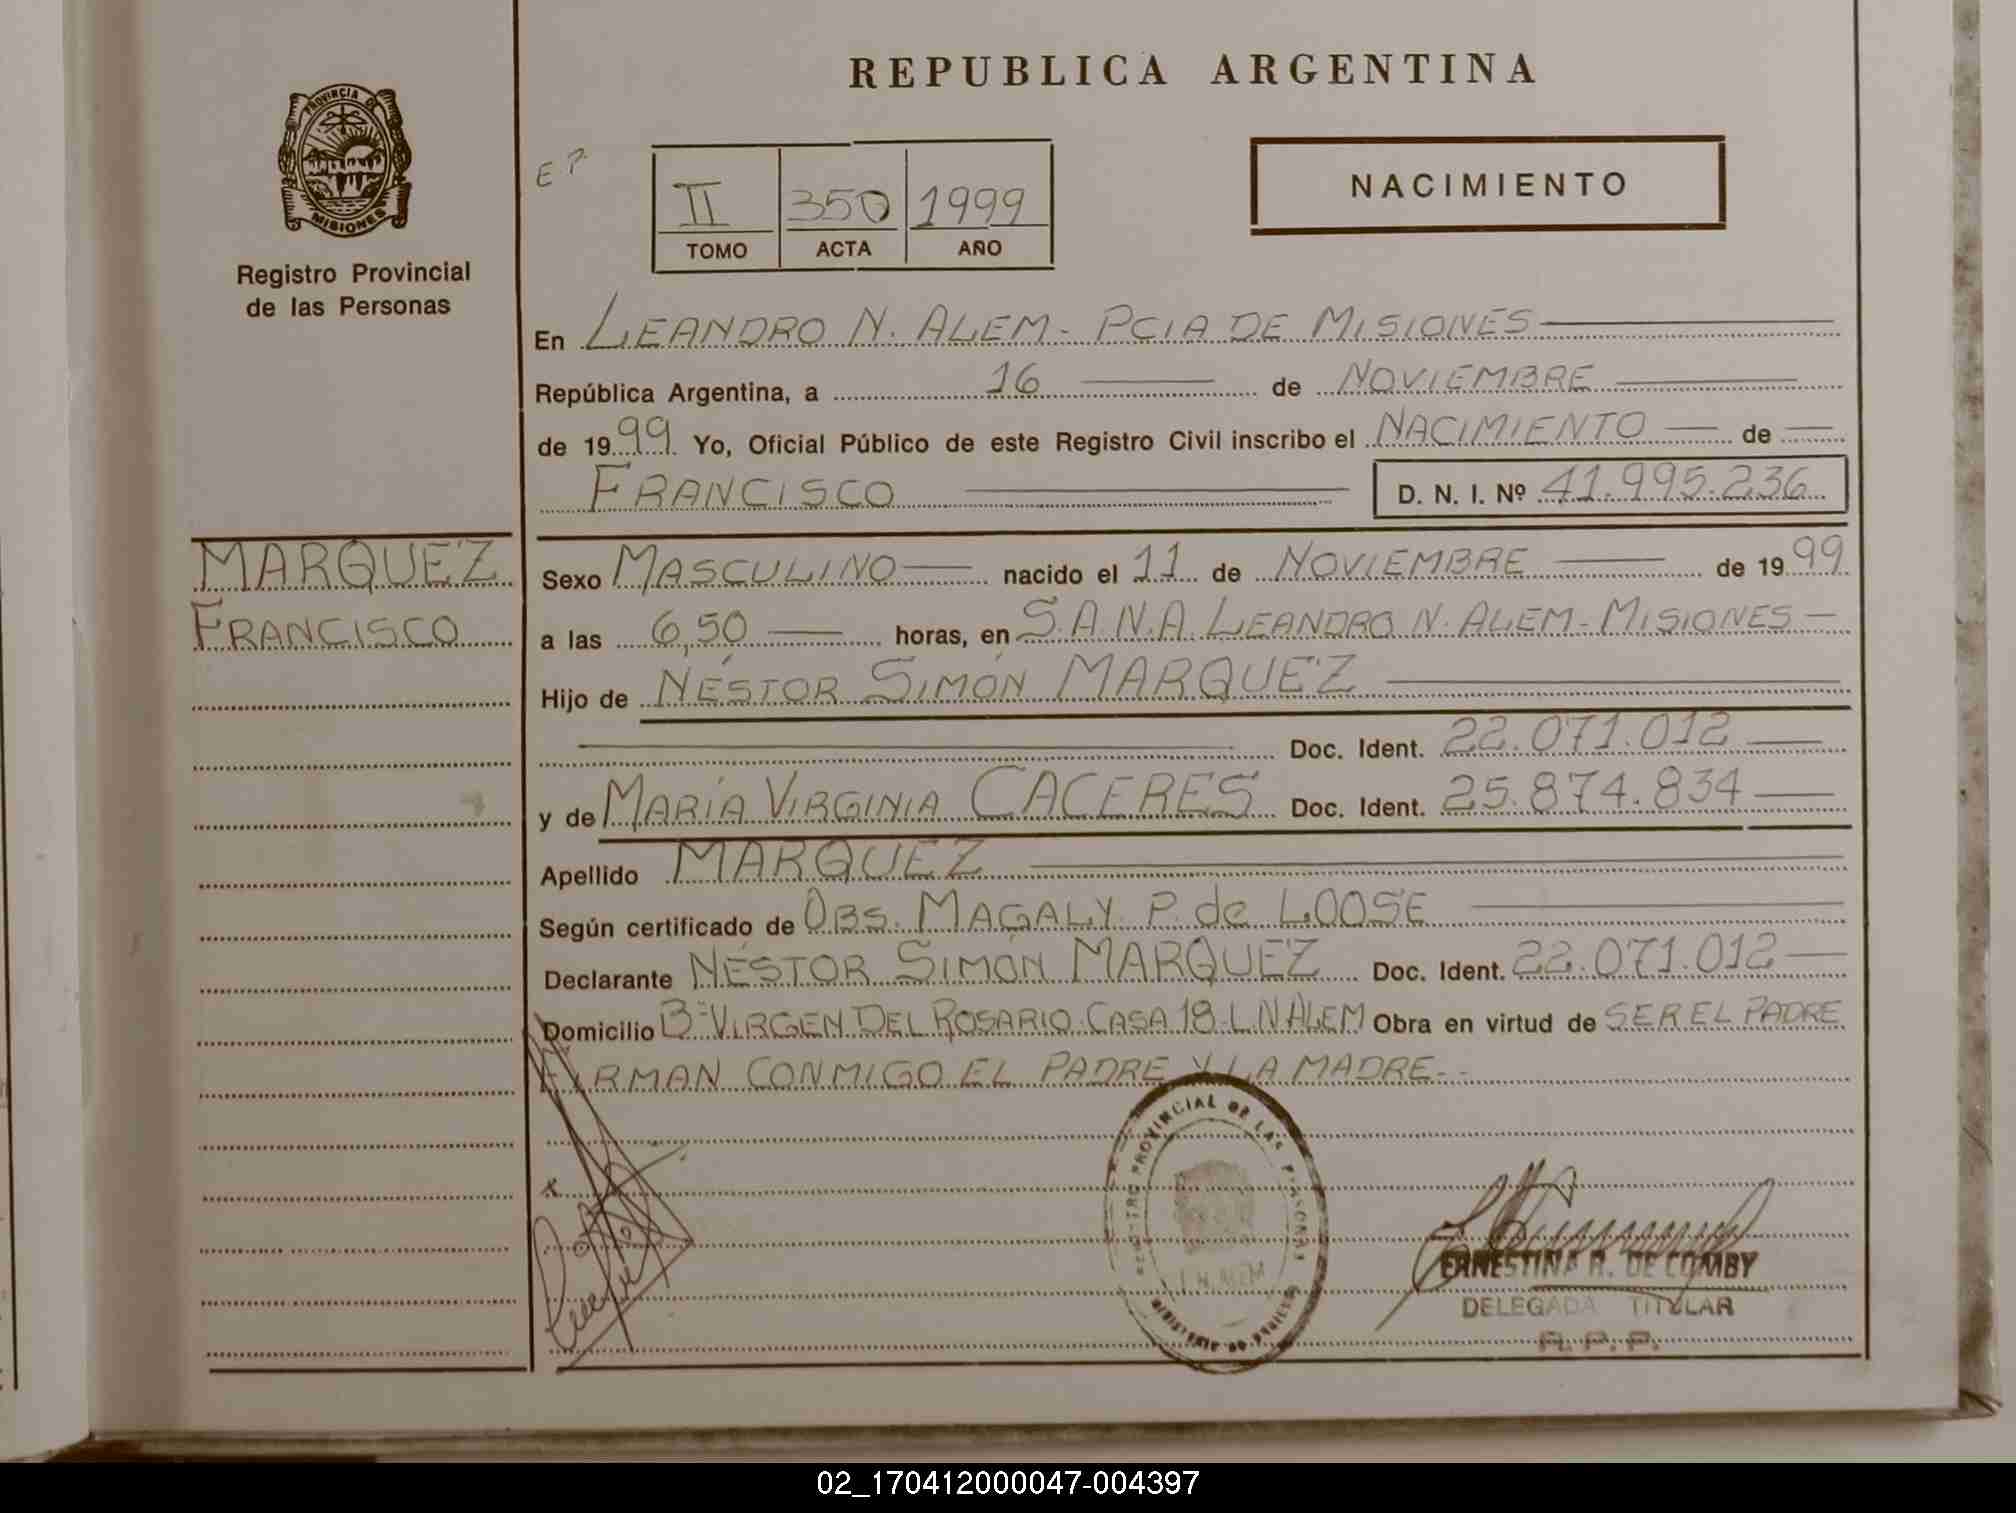 REPUBLICA ARGENTINA
PROVINCIA DE
MISIONES
Registro Provincial
de las Personas
II 350 1999
TOMO ACTA AÑO
NACIMIENTO
En LEANDRO N. ALEM - PCIA DE MISIONES
República Argentina, a 16 de NOVIEMBRE
de 1999 Yo, Oficial Público de este Registro Civil inscribo el NACIMIENTO de
FRANCISCO D. N. I. Nº 41.995.236
MARQUEZ
FRANCISCO
Sexo MASCULINO nacido el 11 de NOVIEMBRE de 1999
a las 6,50 horas, en S.A.N.A. LEANDRO N. ALEM - MISIONES
Hijo de NÉSTOR SIMÓN MARQUEZ
Doc. Ident. 22.071.012
y de MARÍA VIRGINIA CACERES Doc. Ident. 25.874.834
Apellido MARQUEZ
Según certificado de OBS. MAGALY P. de LOOSE
Declarante NÉSTOR SIMÓN MARQUEZ Doc. Ident. 22.071.012
Domicilio Bº VIRGEN DEL ROSARIO CASA 18-L N ALEM Obra en virtud de SER EL PADRE
FIRMAN CONMIGO EL PADRE Y LA MADRE.-
REGISTRO PROVINCIAL DE LAS PERSONAS
L. N. ALEM
ERNESTINA R. DE COMBY
DELEGADA TITULAR
R. P. P.
02_170412000047-004397